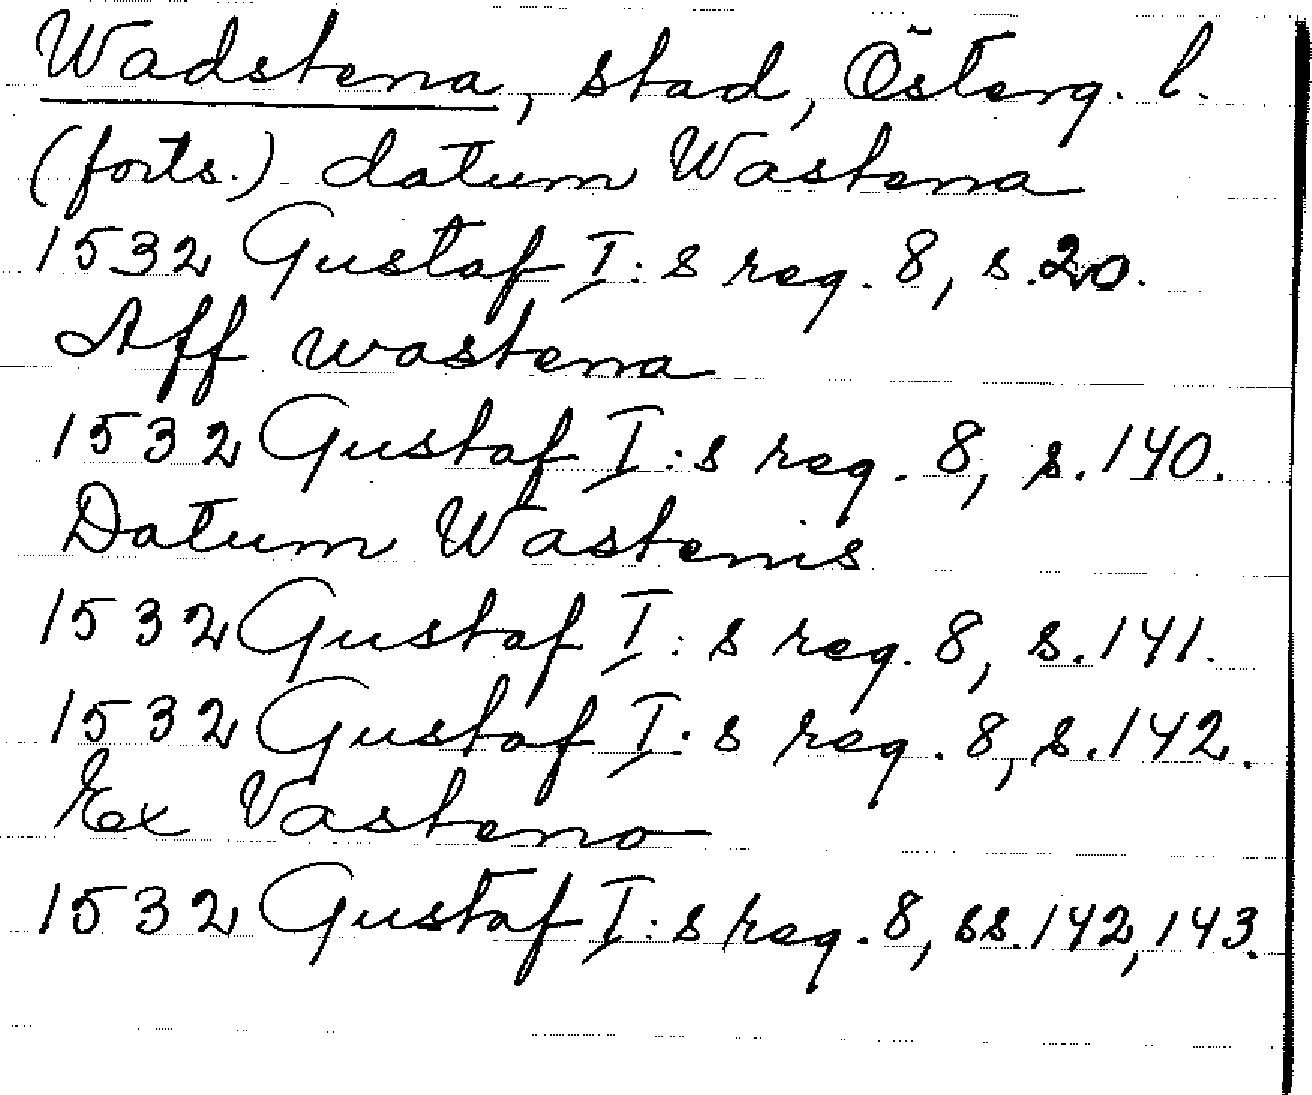 Wadstena, stad, Österg. l.
(forts.) datum Wastena
1532 Gustaf I:s reg. 8, s.20.
Aff wastena
1532 Gustaf I:s reg. 8, s.140.
Datum Wastenis
1532 Gustaf I:s reg. 8, s.141.
1532 Gustaf I:s reg. 8, s.142.
Ex Vasteno
1532 Gustaf I:s reg. 8, ss.142, 143.